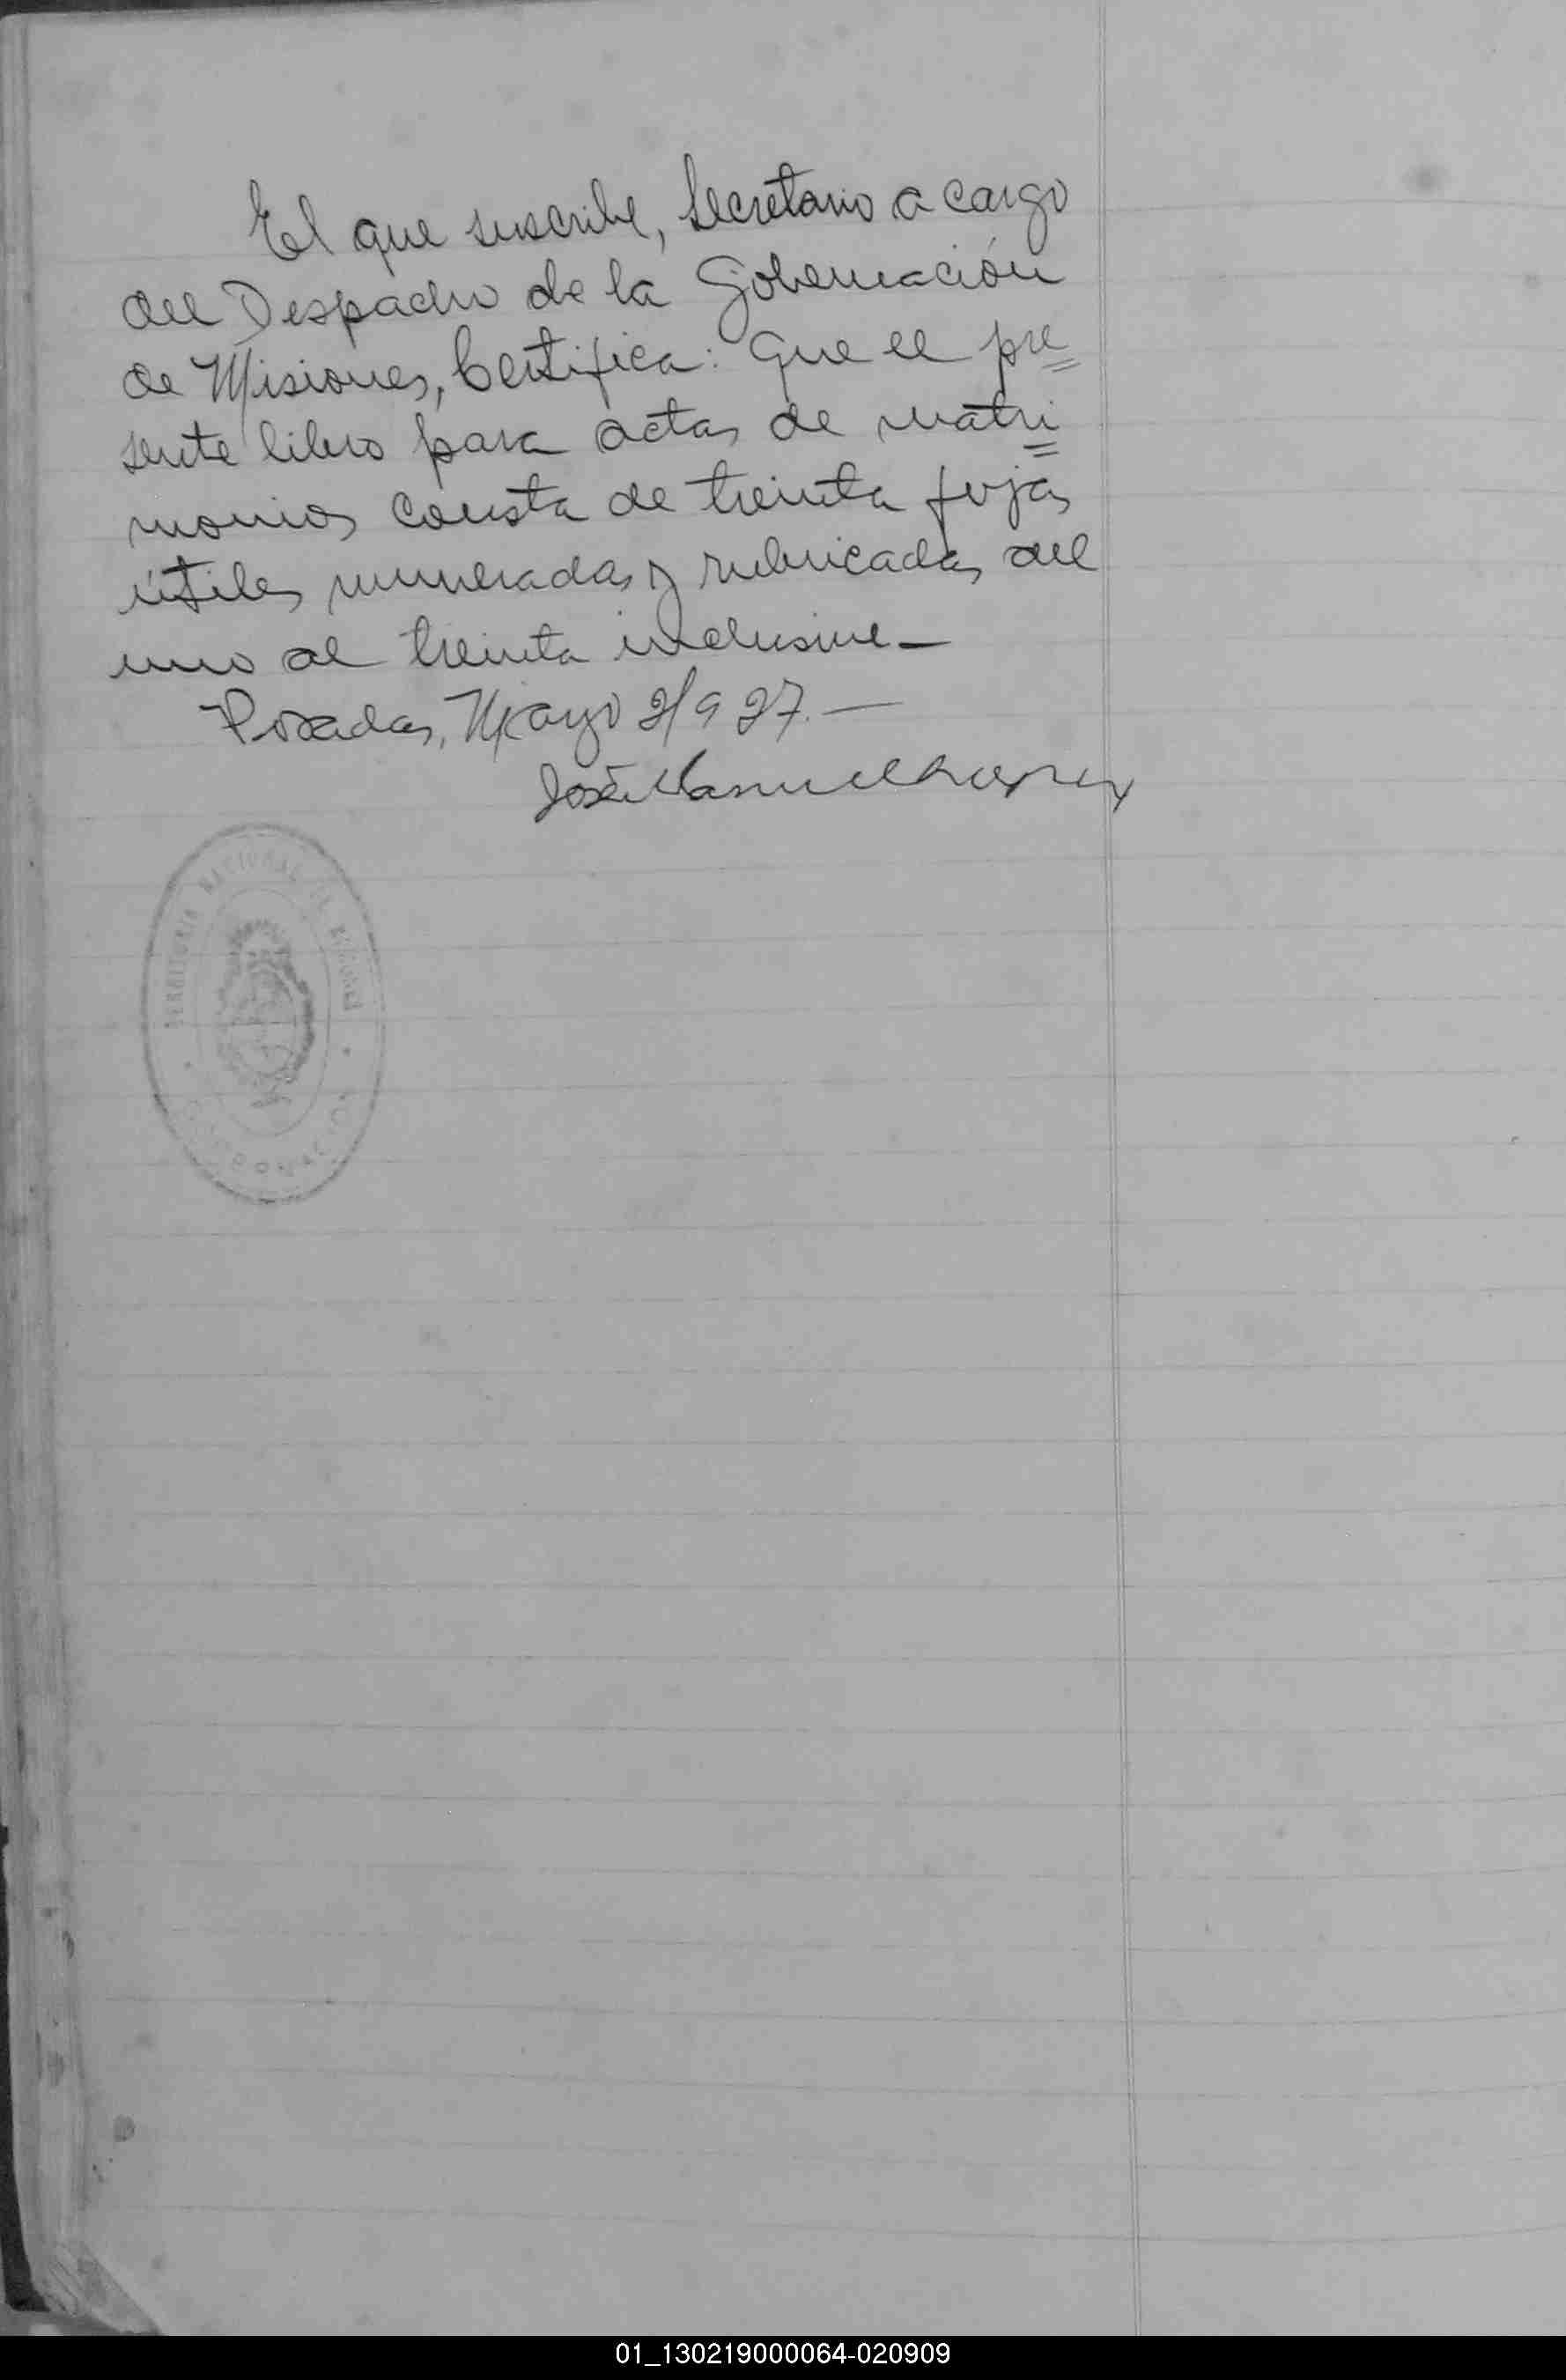 El que suscribe, Secretario a cargo
del Despacho de la Gobernación
de Misiones, Certifica: Que el pre=
sente libro para actas de matri=
monios consta de treinta fojas
útiles numeradas y rubricadas del
uno al treinta inclusive—
Posadas, Mayo 2/927.—
José Manuel
TERRITORIO NACIONAL DE MISIONES
GOBERNACION
01_130219000064-020909